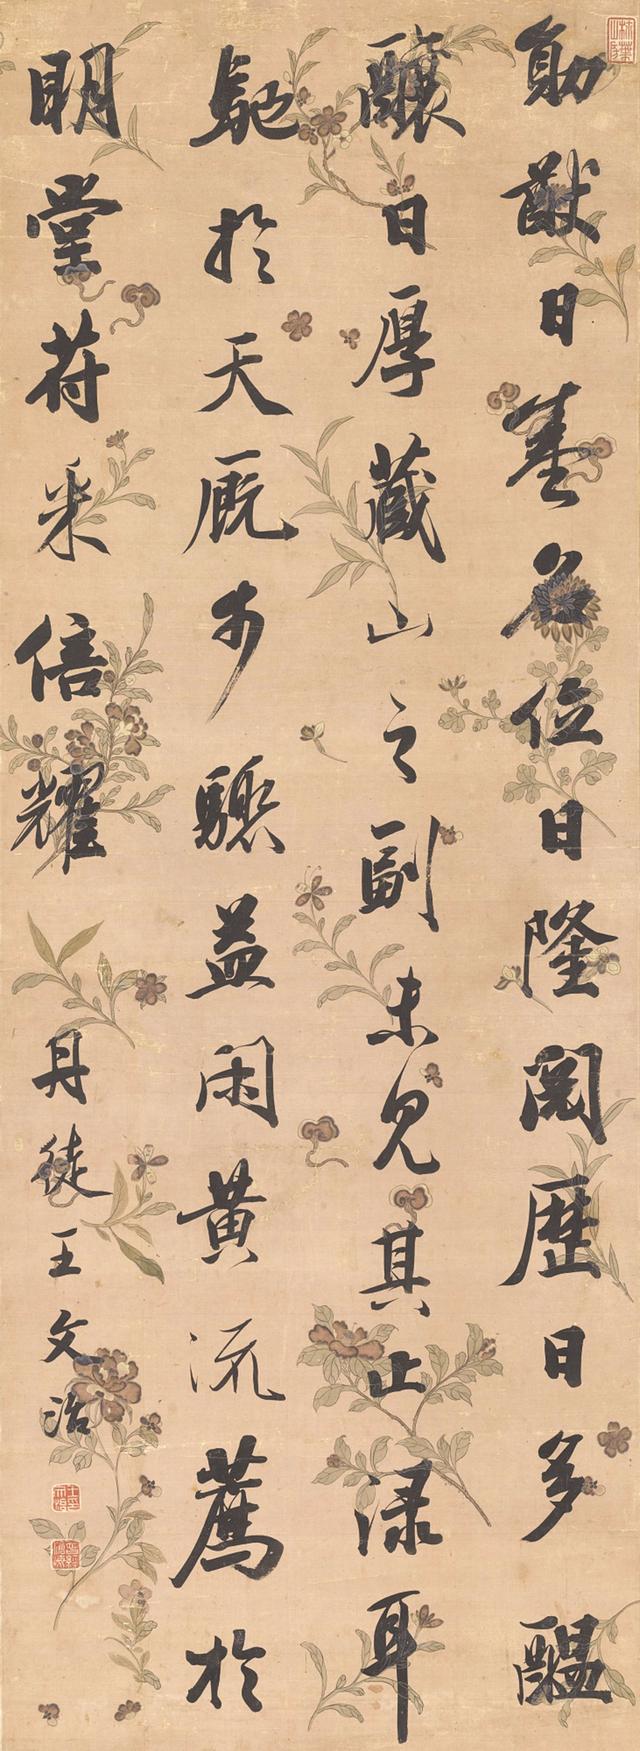 勛猷日名位日隆閱歷日多醞
釀日厚藏山之副未見其止渌耳
馳於天厩步驟益閑黃流薦於
明堂苻采倍耀
丹徒王文治